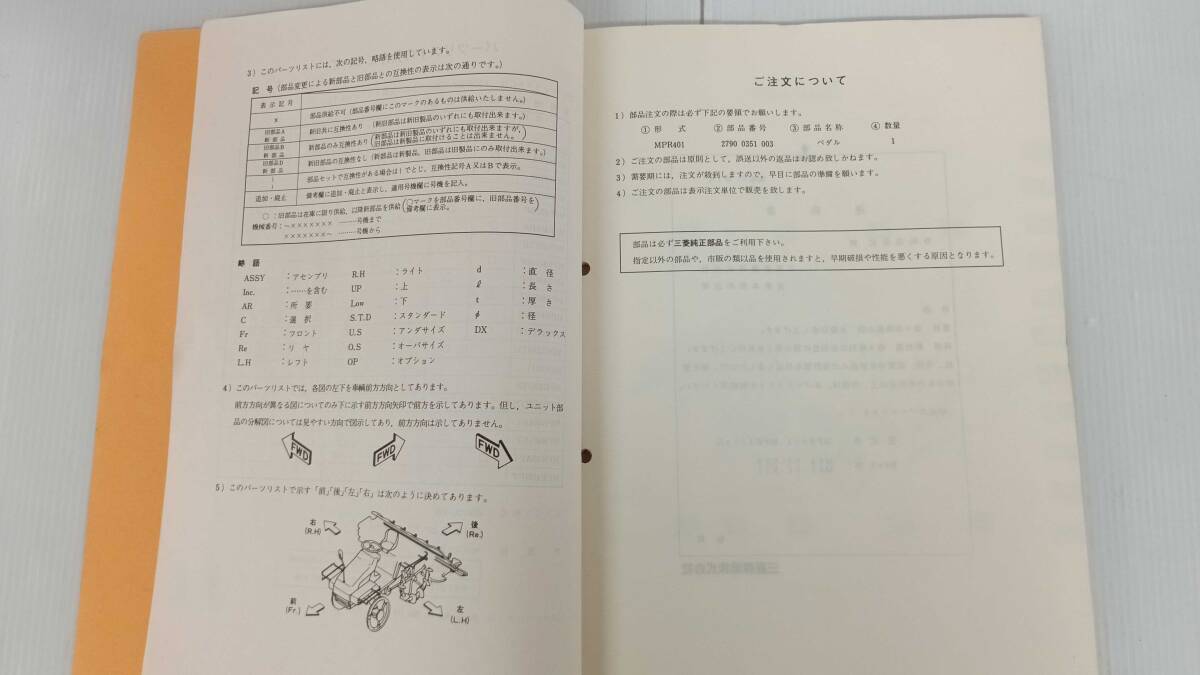 3) このパーツリストには、次の記号、略語を使用しています。
記 号 (部品変更による新部品と旧部品との互換性の表示は次の通りです。)
表 示 記 号
× 部品供給不可 (部品番号欄にこのマークのあるものは供給いたしません。)
旧部品A
新 部 品 新旧共に互換性あり (新旧部品は新旧製品のいずれにも取付出来ます。)
旧部品B
新 部 品 新部品のみ互換性あり (新部品は新旧製品のいずれにも取付出来ますが、旧部品は新製品に取付けることは出来ません。)
旧部品D
新 部 品 新旧部品の互換性なし (新部品は新製品、旧部品は旧製品にのみ取付出来ます。)
部品セットで互換性がある場合は ! でとじ、互換性記号A又はBで表示。
追加・廃止 備考欄に追加・廃止と表示し、適用号機欄に号機を記入。
○ : 旧部品は在庫に限り供給、以降新部品を供給 (○マークを部品番号欄に、旧部品番号を備考欄に表示。)
機械番号: ~××××××× ………号機まで
×××××××~ ………号機から
略 語
ASSY : アセンブリ R.H : ライト d : 直 径
Inc. : ……を含む UP : 上 ℓ : 長 さ
AR : 所 要 Low : 下 t : 厚 さ
C : 選 択 S.T.D : スタンダード φ : 径
Fr : フロント U.S : アンダサイズ DX : デラックス
Re : リ ヤ O.S : オーバサイズ
L.H : レフト OP : オプション
4) このパーツリストでは、各図の左下を車輌前方方向としてあります。
前方方向が異なる図についてのみ下に示す前方方向矢印で前方を示してあります。但し、ユニット部
品の分解図については見やすい方向で図示してあり、前方方向は示してありません。
FWD FWD FWD
5) このパーツリストで示す「前」「後」「左」「右」は次のように決めてあります。
右
(R.H)
後
(Re.)
前
(Fr.)
左
(L.H)
ご注文について
1) 部品注文の際は必ず下記の要領でお願いします。
① 形 式 ② 部 品 番 号 ③ 部 品 名 称 ④ 数量
MPR401 2790 0351 003 ペダル 1
2) ご注文の部品は原則として、誤送以外の返品はお認め致しかねます。
3) 需要期には、注文が殺到しますので、早目に部品の準備を願います。
4) ご注文の部品は表示注文単位で販売を致します。
部品は必ず三菱純正部品をご利用下さい。
指定以外の部品や、市販の類似品を使用されますと、早期破損や性能を悪くする原因となります。